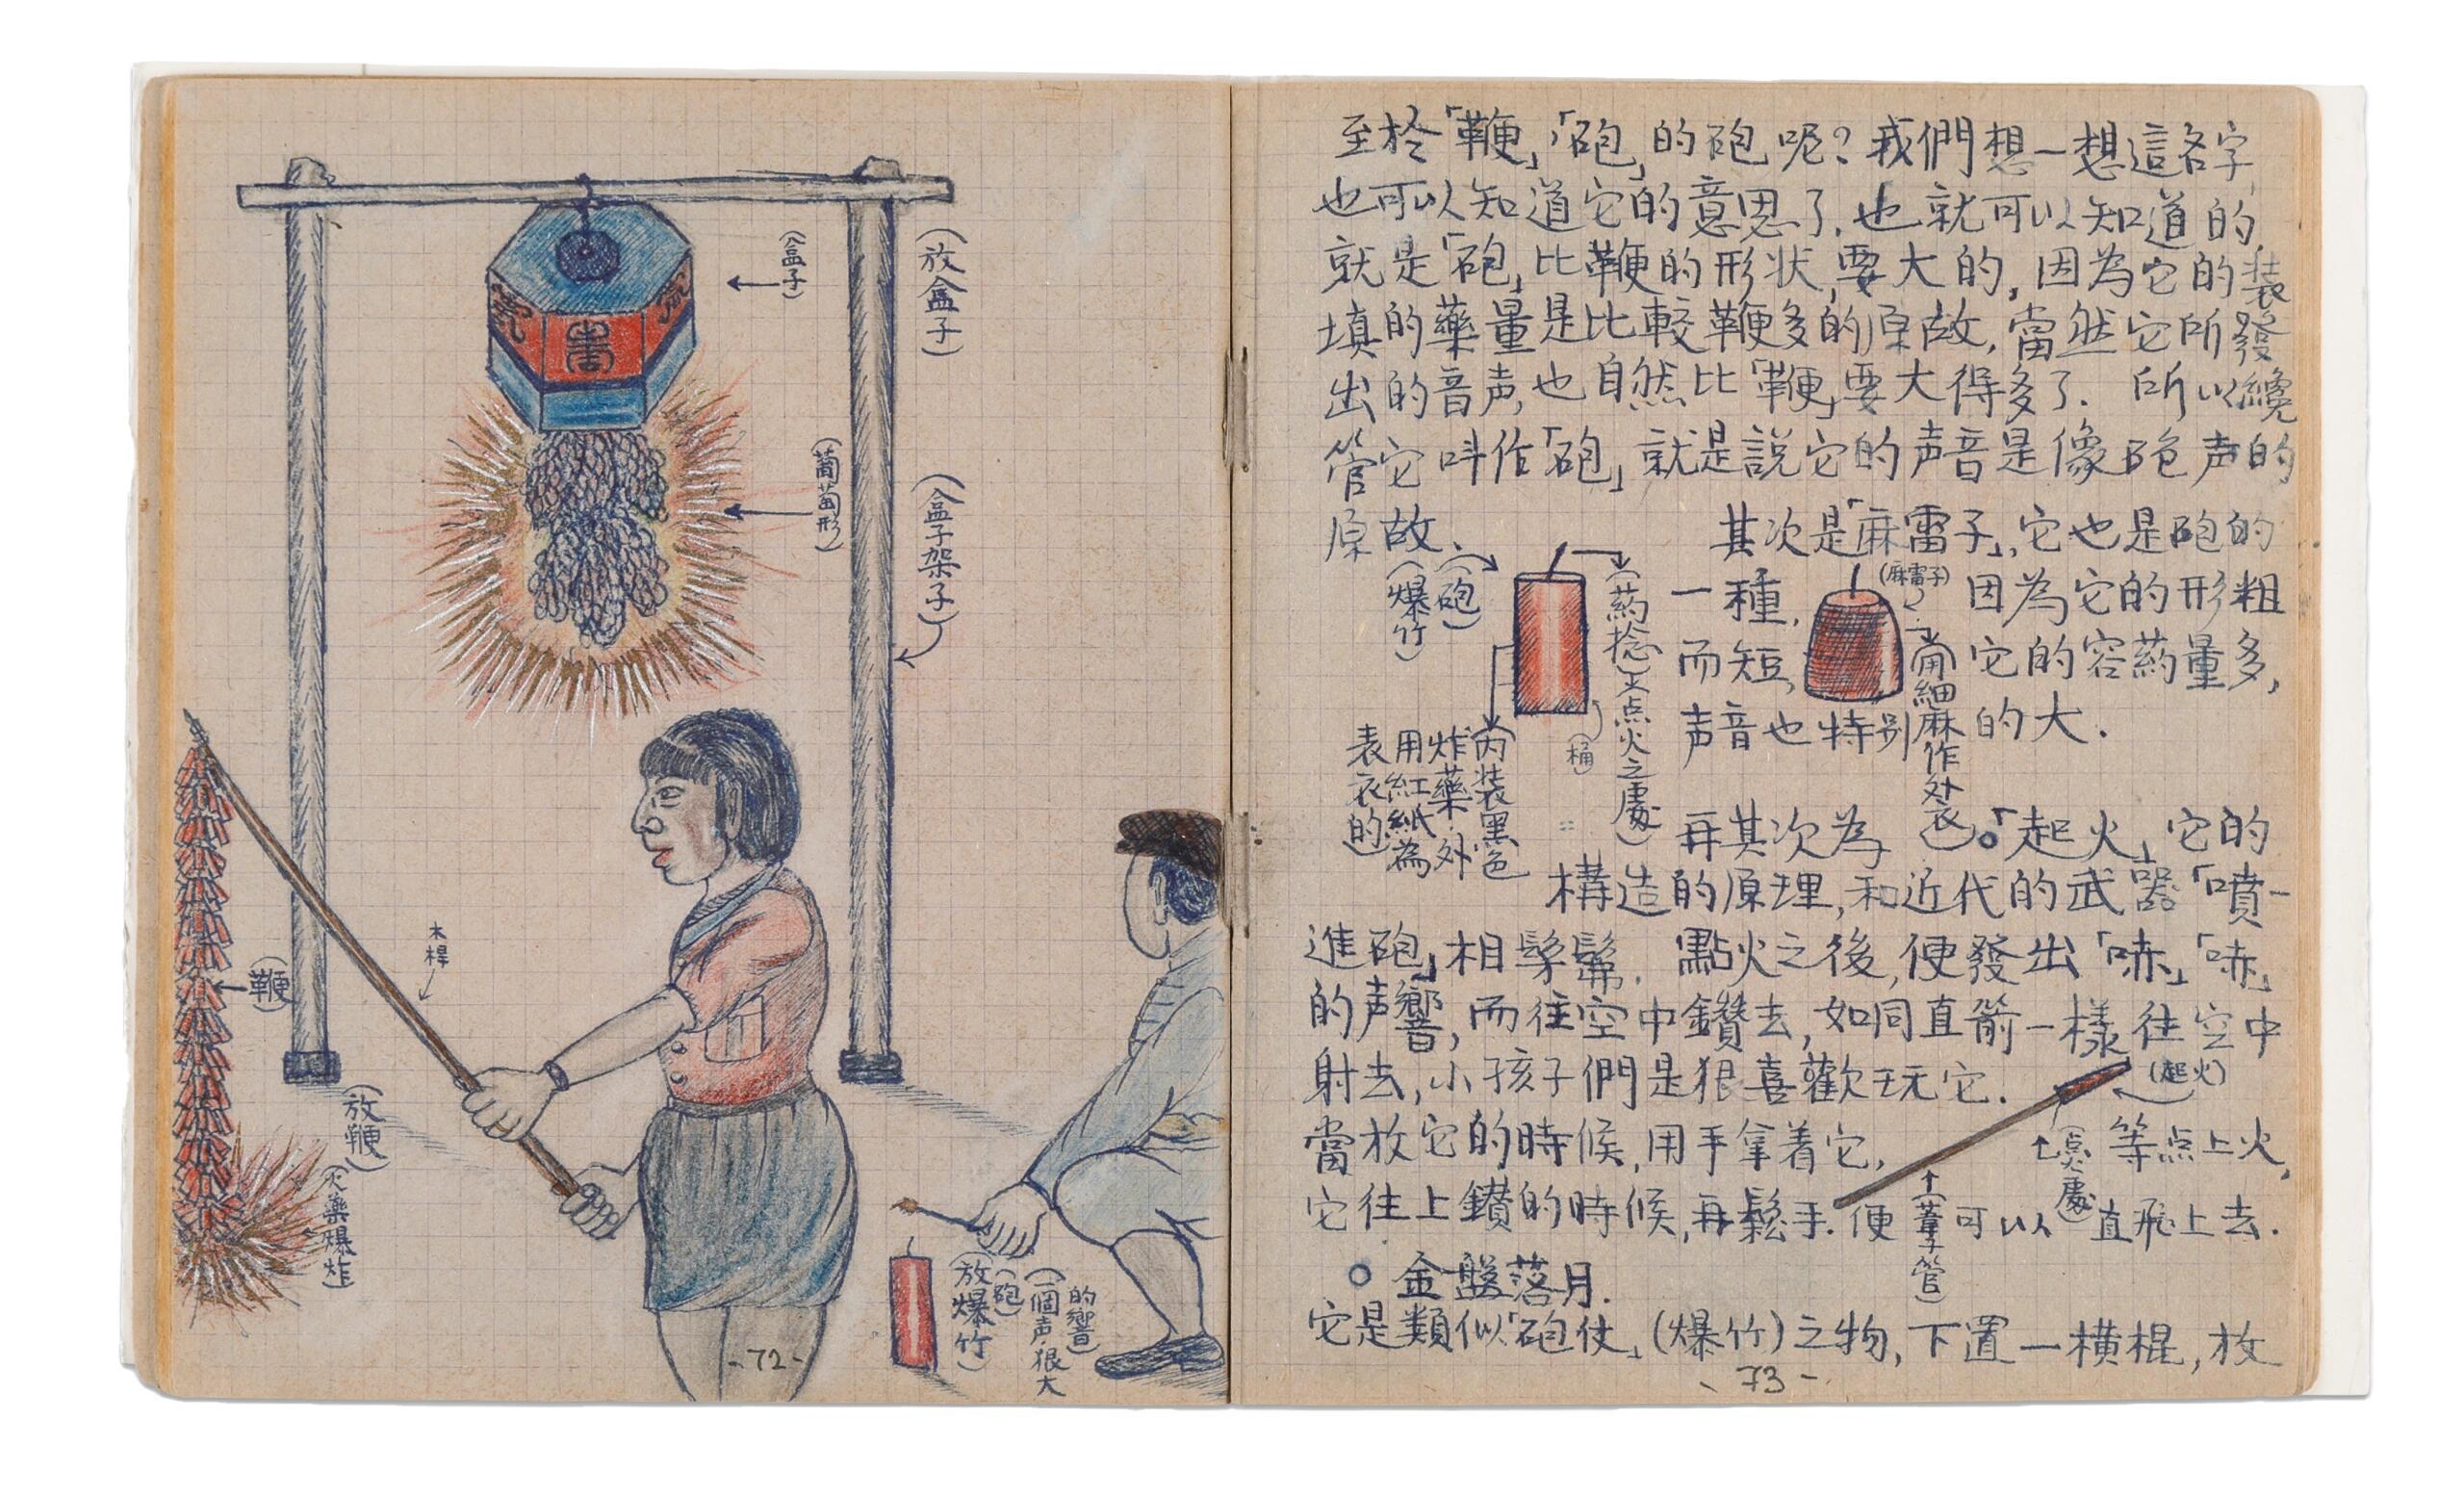 (放盒子)
(盒子)
(葡萄形)
(盒子架子)
木桿
(鞭)
(放鞭)
(火藥爆炸)
(放爆竹)
(砲)
(一個声很大
的響)
-72-
至於「鞭」,「砲」的砲呢?我們想一想這各字,
也可以知道它的意思了.也就可以知道的
就是「砲」比鞭的形状,要大的,因為它的装
填的藥量是比較鞭多的原故,當然它所發
出的音声,也自然比「鞭」要大得多了.所以纔
管它叫作「砲」就是説它的声音是像砲声的
原故、
其次是「麻雷子」,它也是砲的
一種,因為它的形粗
而短,它的容药量多,
声音也特别的大.
(砲)
(爆竹)
(药捻)
(点火之處)
(桶)
(内装黑色
炸藥.外
用紅紙為
表衣的)
(麻雷子)
(用細麻作外衣)
再其次為。「起火」它的
構造的原理,和近代的武器「噴-
進砲」相髣髴.點火之後,便發出「哧」「哧」
的声響,而往空中鑽去,如同直箭一樣往空中
射去,小孩子們是狠喜歡玩它.
(起火)
當放它的時候,用手拿着它,等点上火,
(点火處)
它往上鑽的時候,再鬆手.便可以直飛上去.
(葦子管)
○ 金盤落月.
它是類似「砲仗」(爆竹)之物,下置一横棍,放
-73-